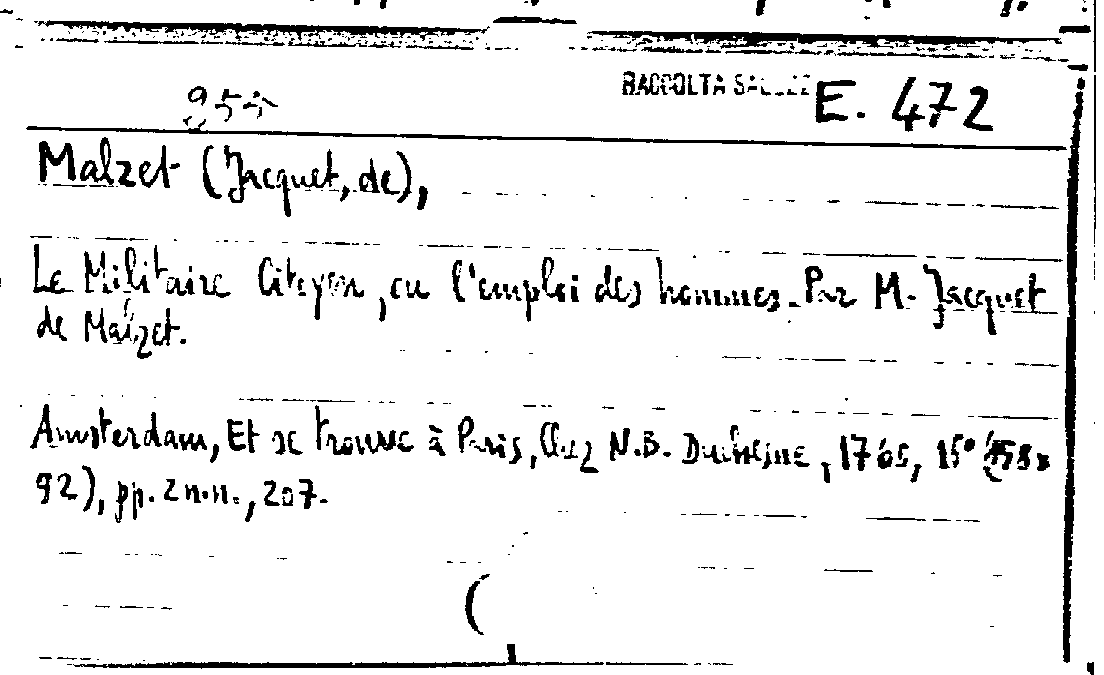 RACCOLTA E. 472
Malzet (Jacquet, de),
Le Militaire Citoyen, ou l'emploi des hommes. Par M. Jacquet
de Malzet.
Amsterdam, Et se trouve à Paris, Chez N.B. Duchesne, 1765, 15° (158x
92), pp. 2 n.n., 207.